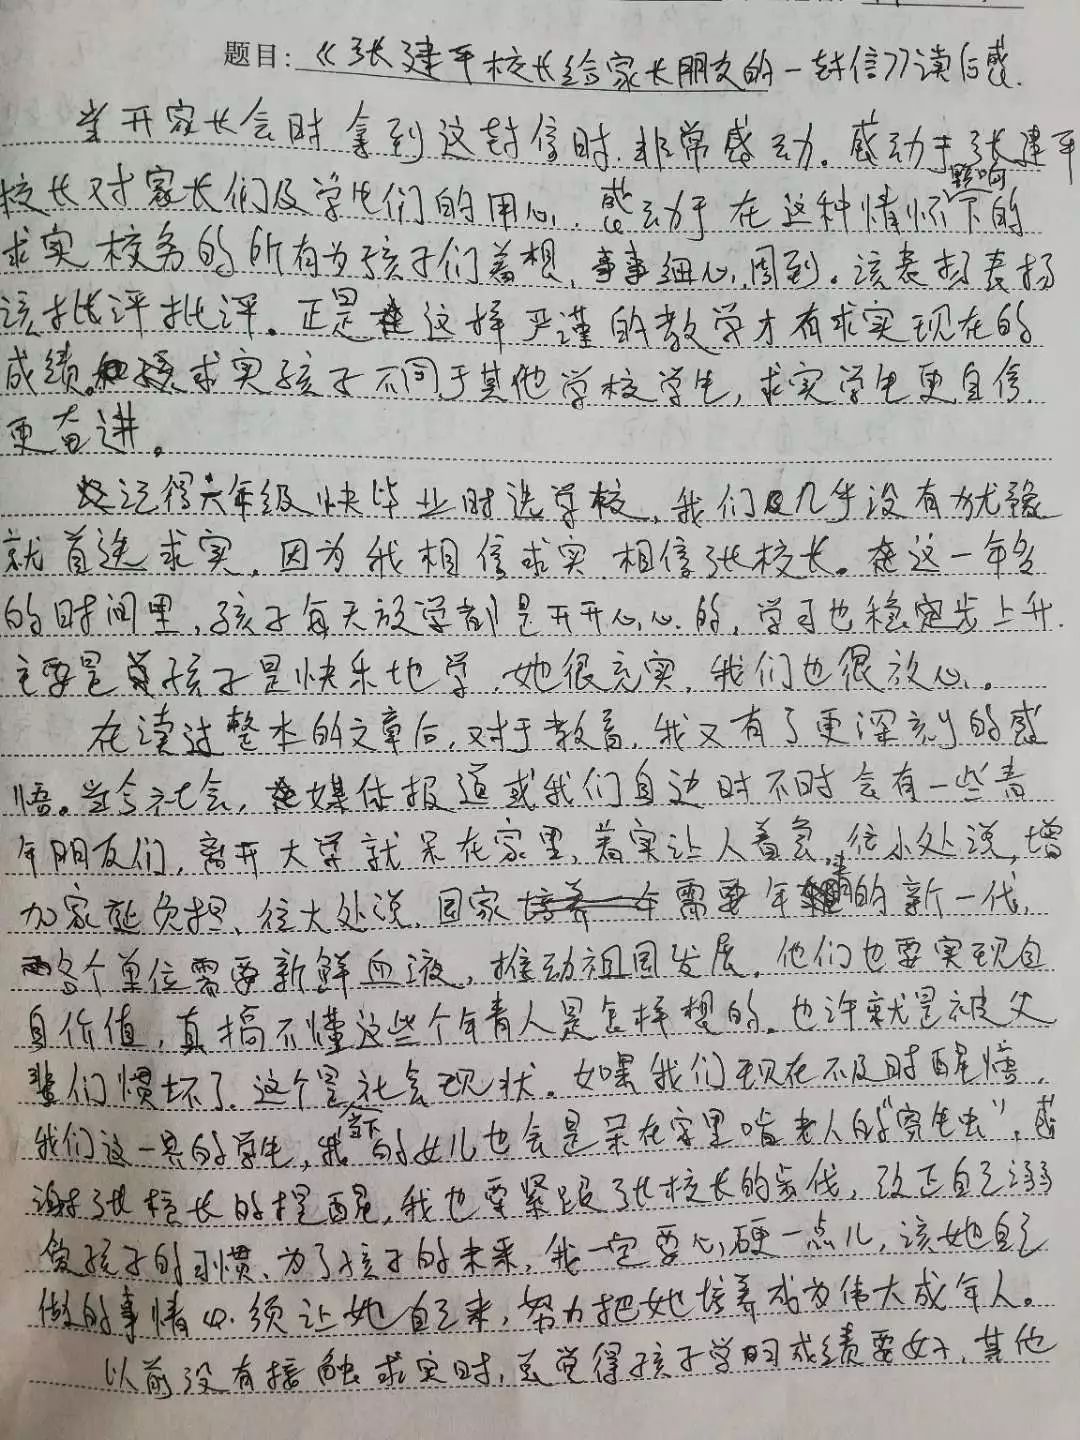 题目:《张建平校长给家长朋友的一封信》读后感.
当开家长会时拿到这封信时.非常感动。感动于张建平
校长对家长们及学生们的用心.感动于在这种情怀影响下的
求实校务的所有为孩子们着想,事事细心,周到。该表扬表扬
该批评批评。正是这样严谨的教学才有求实现在的
成绩。求实孩子不同于其他学校学生,求实学生更自信
更奋进。
记得六年级快毕业时选学校,我们几乎没有犹豫
就首选求实,因为我相信求实.相信张校长。在这一年多
的时间里,孩子每天放学都是开开心心的,学习也稳定步上升.
主要是孩子是快乐地学.她很充实,我们也很放心。
在读过整本的文章后,对于教育,我又有了更深刻的感
悟。当今社会,媒体报道或我们身边时不时会有一些青
年朋友们,离开大学就呆在家里,着实让人着急,往小处说,增
加家庭负担、往大处说,国家需要年青的新一代,
各个单位需要新鲜血液,推动祖国发展,他们也要实现自
身价值,真搞不懂这些个年青人是怎样想的。也许就是被父
辈们惯坏了.这个是社会现状。如果我们现在不及时醒悟,
我们这一界的学生,我当下的女儿也会是呆在家里啃老人的“寄生虫”,感
谢张校长的提醒,我也要紧跟张校长的步伐,改正自己溺
爱孩子的习惯、为了孩子的未来,我一定要心硬一点儿,该她自己
做的事情必须让她自己来,努力把她培养成为伟大成年人。
以前没有接触求实时,总觉得孩子学习成绩要好,其他